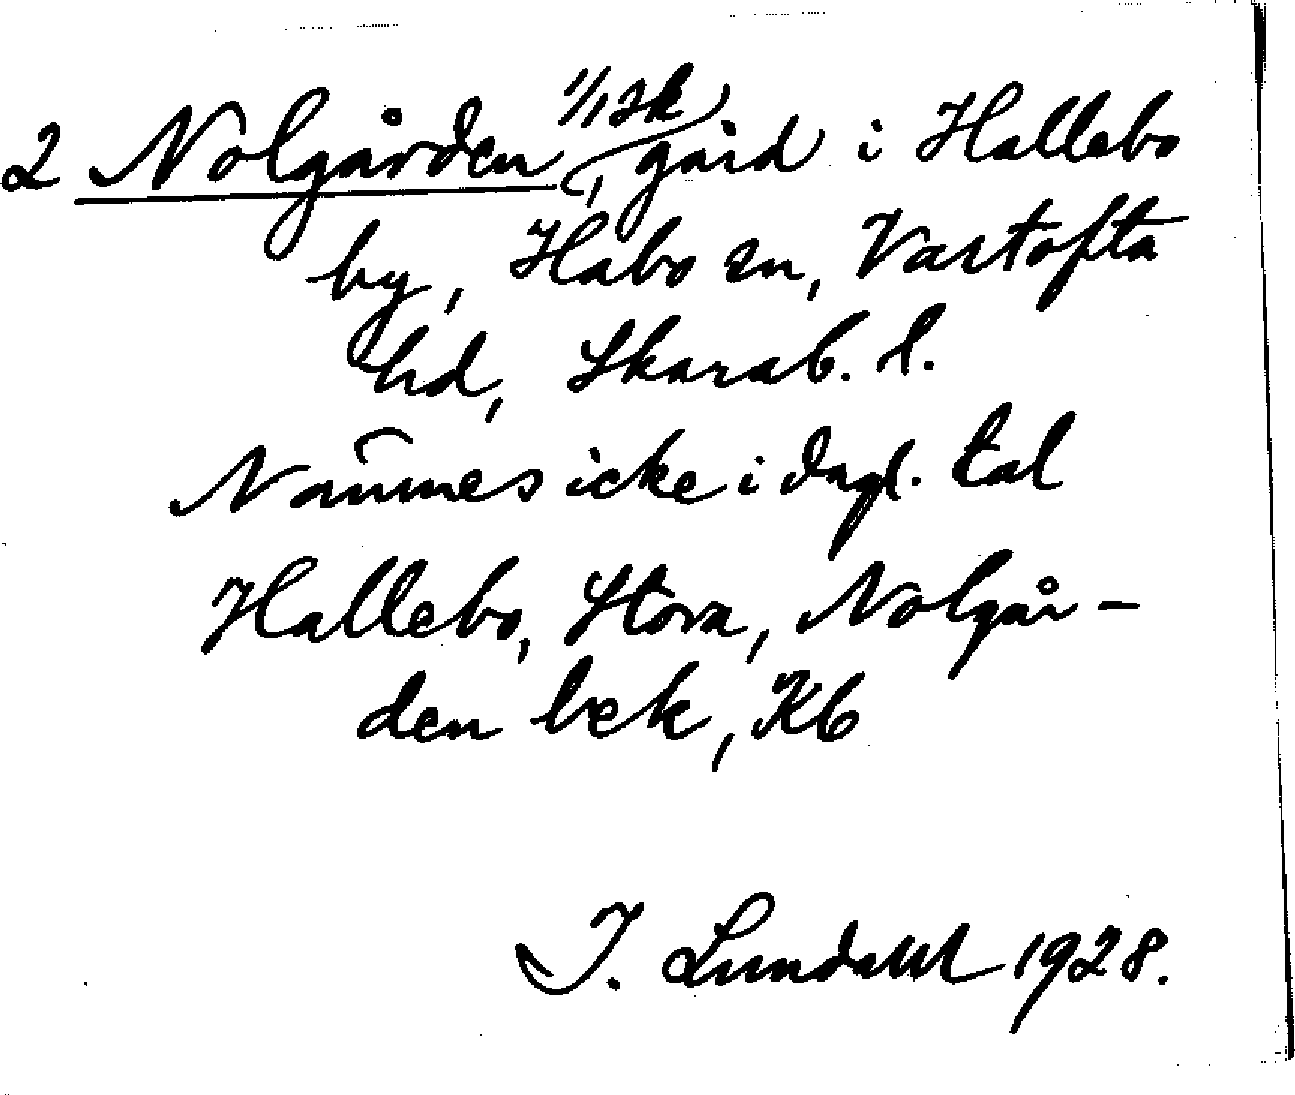 2 Nolgården, 1/1 sk gård i Hallebo
by, Habo sn, Vartofta
hd, Skarab. l.
Nämnes icke i dagl. tal
Hallebo, Stora, Nolgår-
den bek, Kb
I. Lundahl 1928.